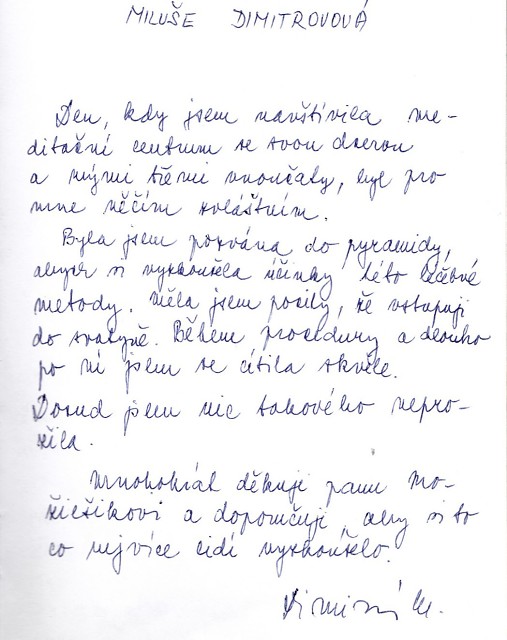 MILUŠE DIMITROVOVÁ
Den, kdy jsem navštívila me-
ditační centrum se svou dcerou
a mými třemi vnoučaty, byl pro
mne něčím zvláštním.
Byla jsem pozvána do pyramidy,
abych si vyzkoušela účinky této léčebné
metody. Měla jsem pocity, že vstupuji
do svatyně. Během procedury a dlouho
po ní jsem se cítila skvěle.
Dosud jsem nic takového nepro-
žila.
Mnohokrát děkuji panu
a doporučuji, aby si to
co nejvíce lidí vyzkoušelo.